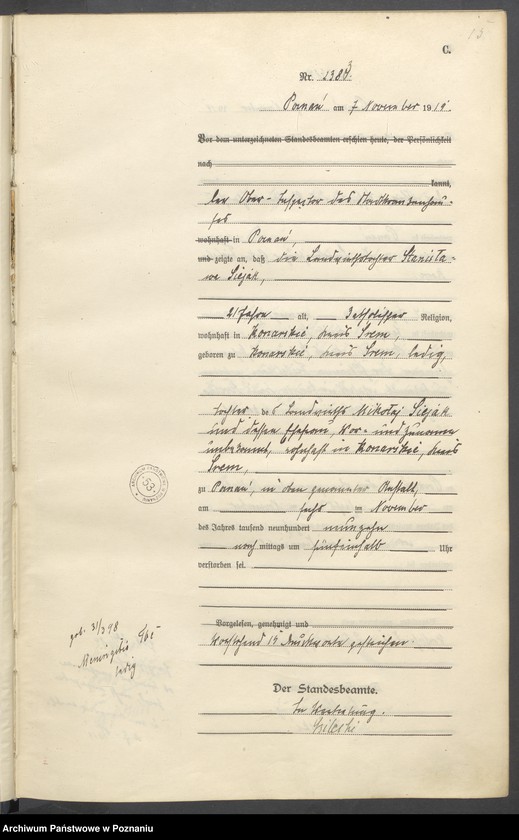 15
C.
Nr. 2383.
Poznań am 7 November 1919.
Vor dem unterzeichneten Standesbeamten erschien heute, der Persönlichkeit
nach
kannt,
der Ober-Inspektor des Stadtkrankenhau-
ses
wohnhaft in Poznań,
und zeigte an, daß die Landwirtstochter Stanisła-
wa Siejak,
21 Jahre alt, katholischer Religion,
wohnhaft in Konarskié, Kreis Śrem,
geboren zu Konarskié, Kreis Śrem, ledig,
Tochter des Landwirths Mikołaj Siejak
und dessen Ehefrau, Vor- und Zuname
unbekannt, wohnhaft in Konarskié, Kreis
Śrem,
zu Poznań, in der genannten Anstalt,
am sechs ten November
des Jahres tausend neunhundert neunzehn
nach mittags um fünfeinhalb Uhr
verstorben sei.
Vorgelesen, genehmigt und
Vorstehend 15 Druckworte gestrichen.
Der Standesbeamte.
In Vertretung.
geb. 31/3 98
ledig
53
Archiwum Państwowe w Poznaniu